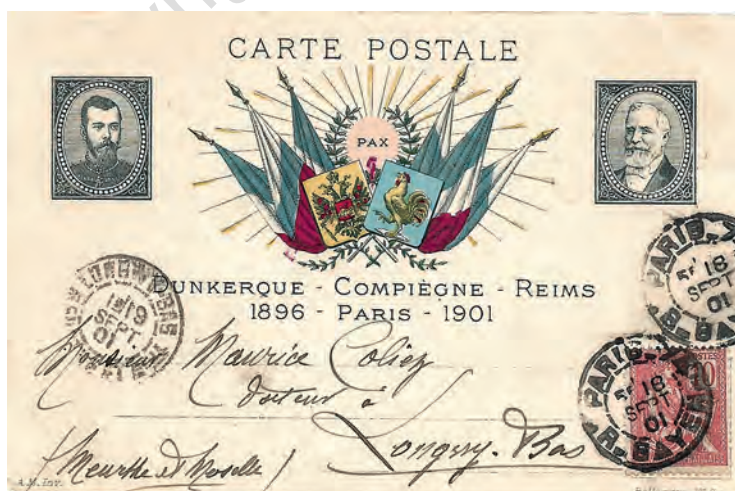 CARTE POSTALE
PAX
DUNKERQUE - COMPIÈGNE - REIMS
1896 - PARIS - 1901
Monsieur Maurice Coliez
docteur à
Longwy-Bas
(Meurthe et Moselle)
PARIS
18
SEPT
01
R. BAYEN
PARIS
18
SEPT
01
R. BAYEN
10
19
SEPT.
01
A.M. Inv.